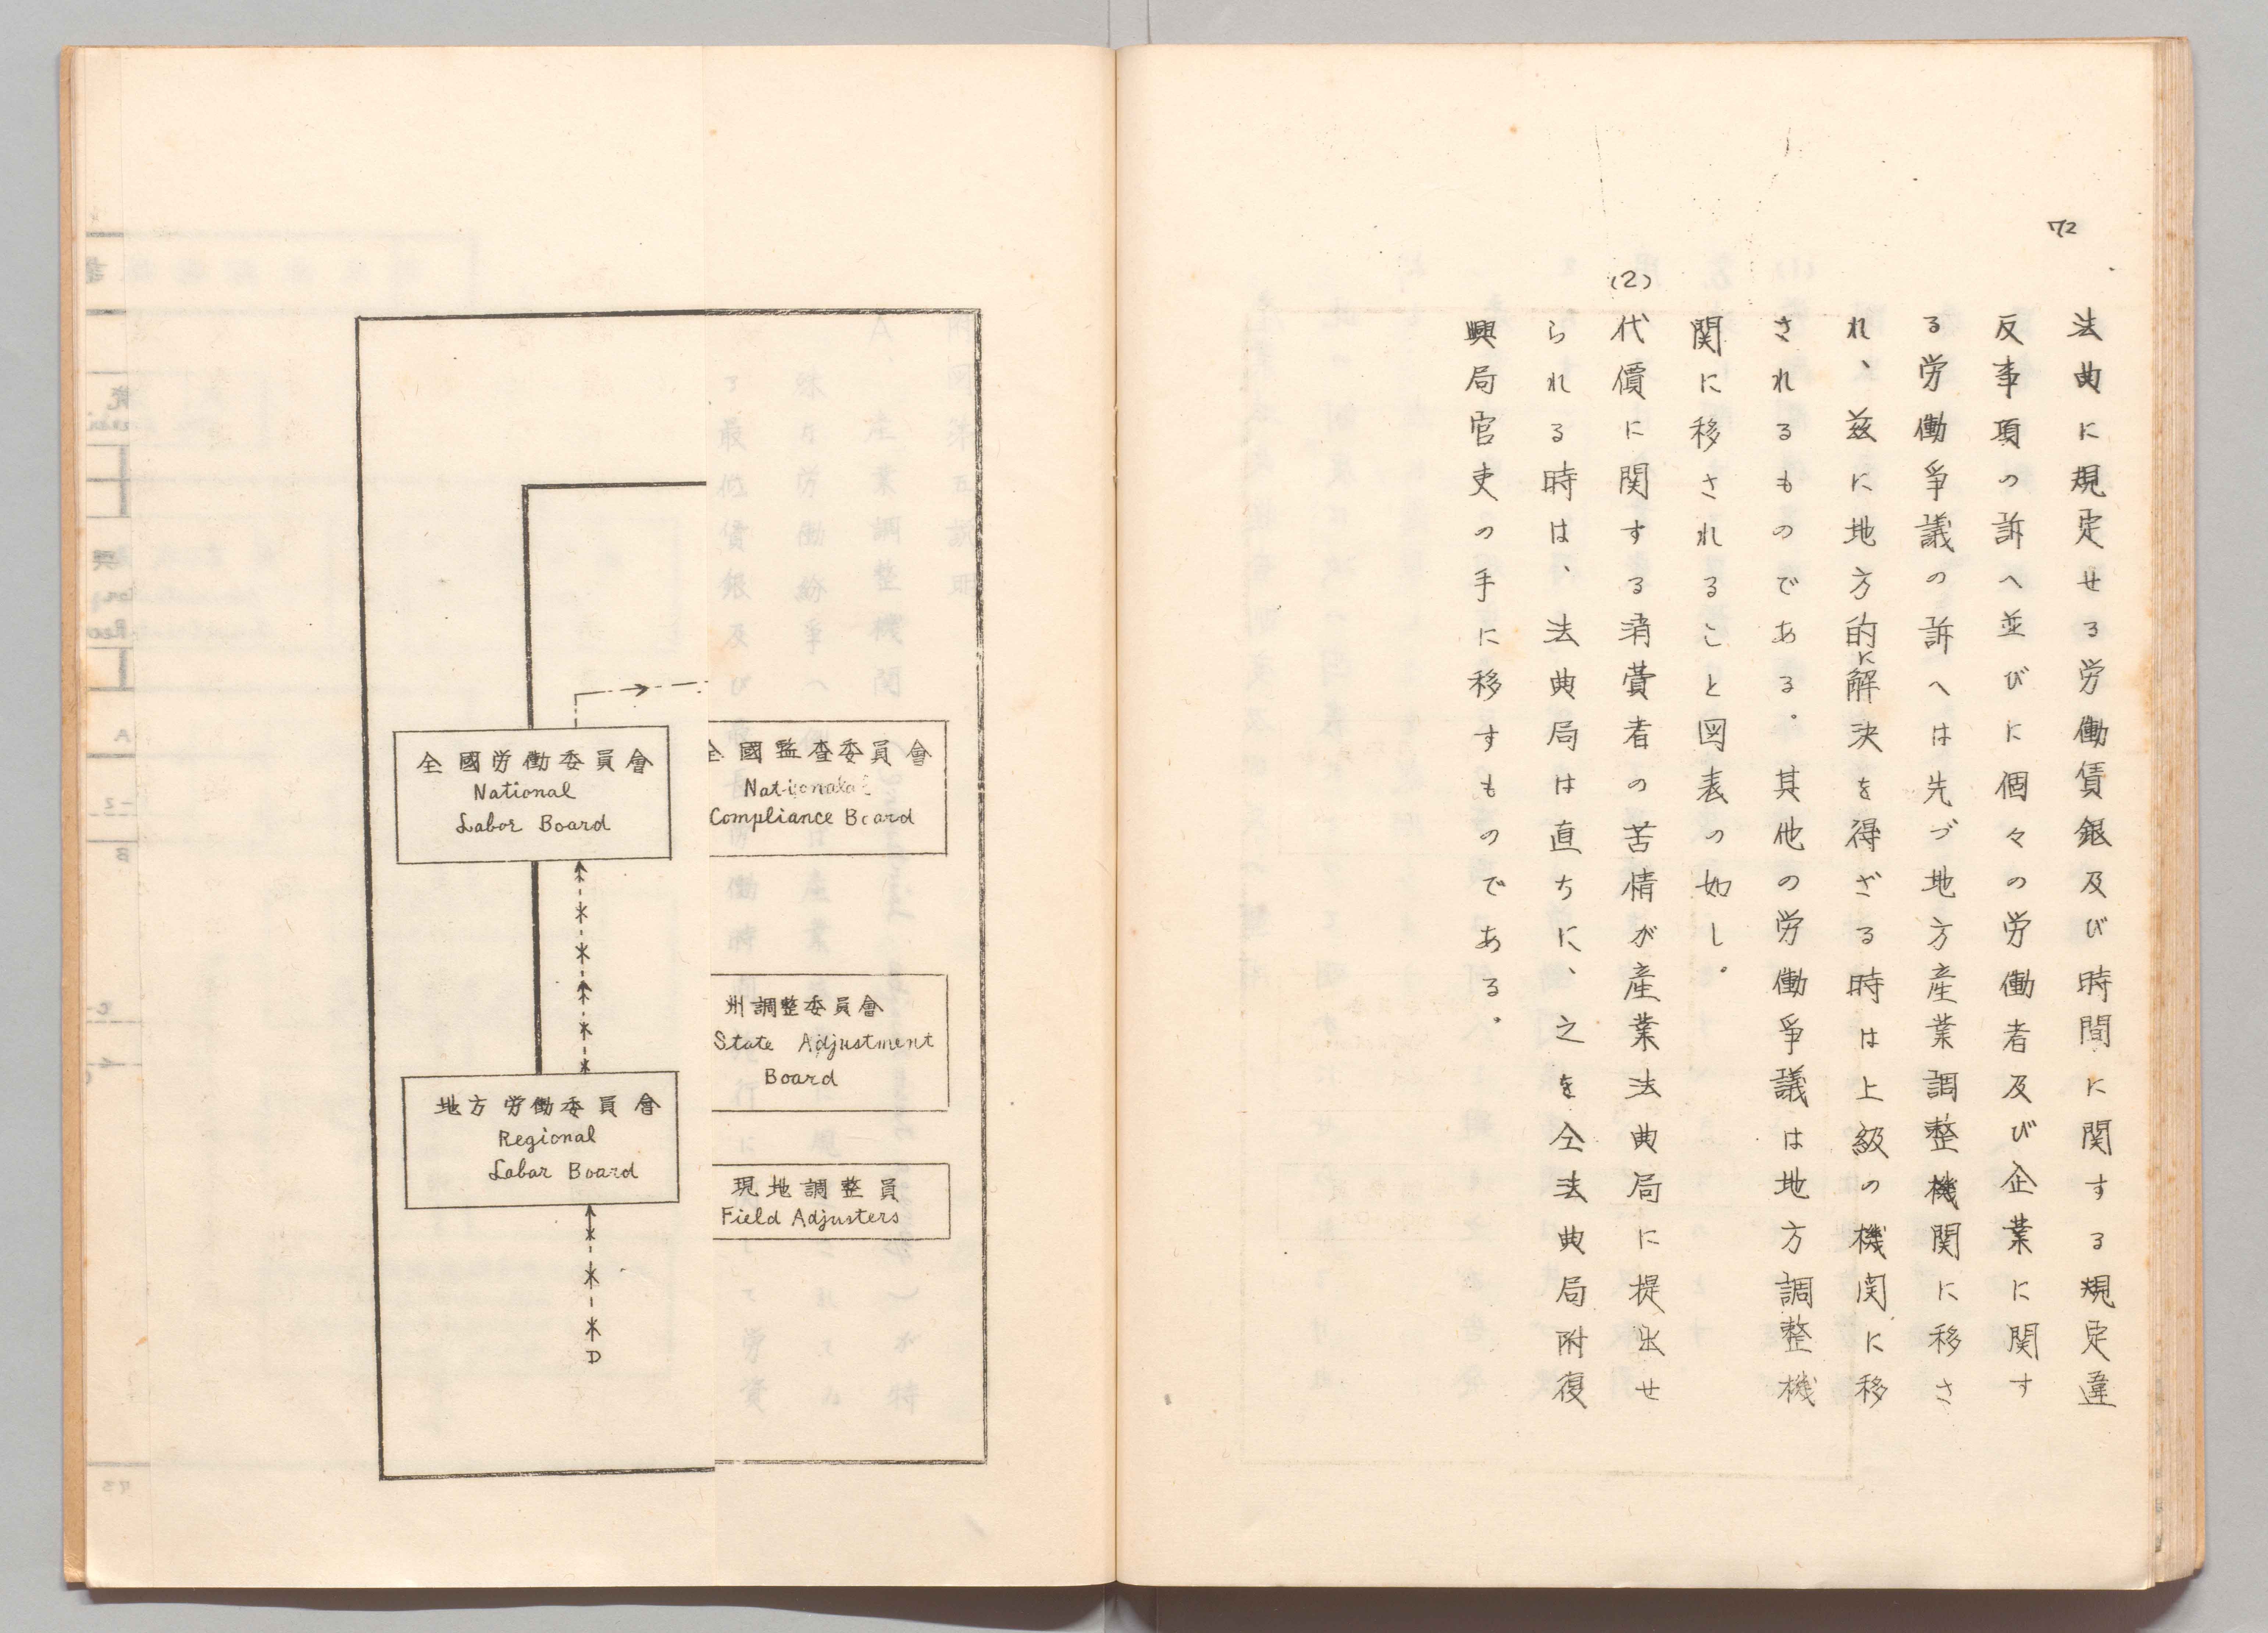 72
法典に規定せる労働賃銀及び時間に関する規定違
反事項の訴へ並びに個々の労働者及び企業に関す
る労働爭議の訴へは先づ地方産業調整機関に移さ
れ、玆に地方的に解決を得ざる時は上級の機関に移
されるものである。其他の労働爭議は地方調整機
関に移されること図表の如し。
(2)
代價に関する消費者の苦情が産業法典局に提出せ
られる時は、法典局は直ちに、之を仝法典局附復
興局官吏の手に移すものである。
全國監査委員會
National
Compliance Board
州調整委員會
State Adjustment
Board
現地調整員
Field Adjusters
全國労働委員會
National
Labor Board
地方労働委員會
Regional
Labar Board
D